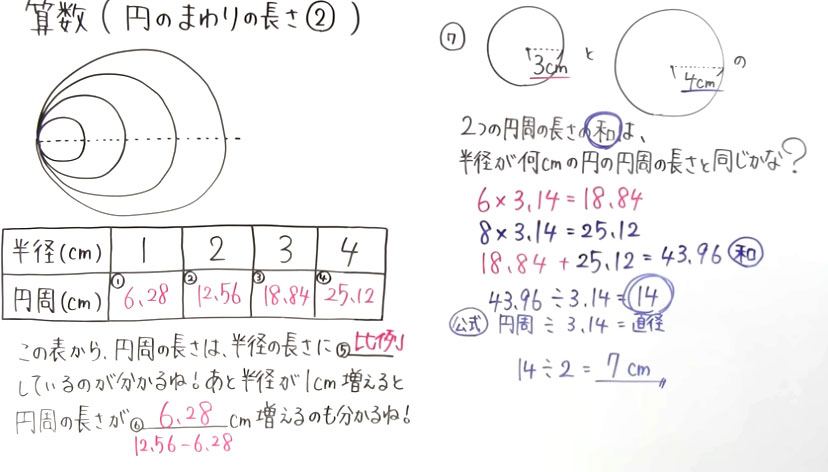 算数(円のまわりの長さ②)
半径(cm) 1 2 3 4
円周(cm) ①6.28 ②12.56 ③18.84 ④25.12
この表から、円周の長さは、半径の長さに⑤比例
しているのが分かるね!あと半径が1cm増えると
円周の長さが⑥6.28cm増えるのも分かるね!
12.56-6.28
⑦ 3cm と 4cm の
2つの円周の長さの和は、
半径が何cmの円の円周の長さと同じかな?
6×3.14=18.84
8×3.14=25.12
18.84+25.12=43.96 和
43.96÷3.14=14
公式 円周÷3.14=直径
14÷2=7cm